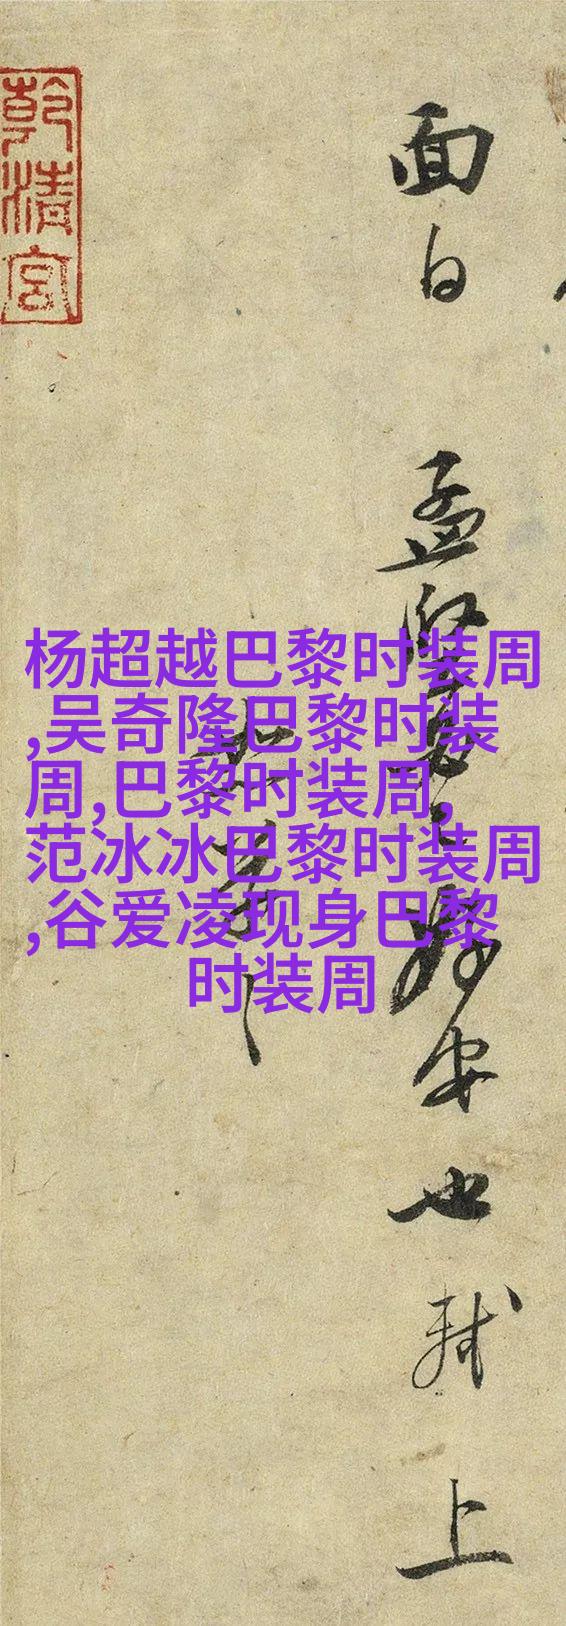 乾清宫
面白
孟坚
安也轼
上
杨超越巴黎时装周
,吴奇隆巴黎时装
周,巴黎时装周,
范冰冰巴黎时装周
,谷爱凌现身巴黎
时装周